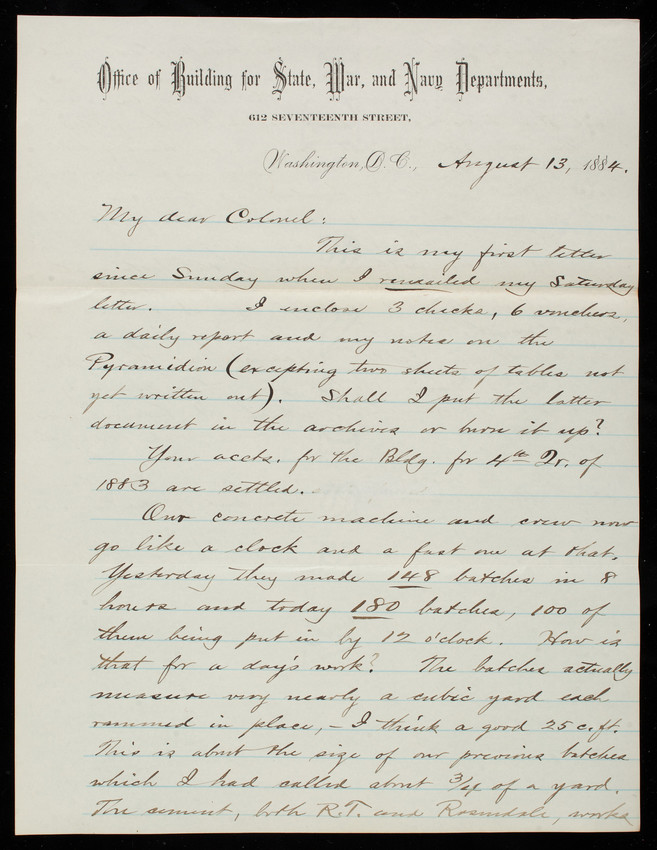 Office of Building for State, War, and Navy Departments,
612 SEVENTEENTH STREET,
Washington, D.C., August 13, 1884.
My dear Colonel:
This is my first letter
since Sunday when I remailed my Saturday
letter. I enclose 3 checks, 6 vouchers,
a daily report and my notes on the
Pyramidion (excepting two sheets of tables not
yet written out). Shall I put the latter
document in the archives or burn it up?
Your accts. for the Bldg. for 4th Qr. of
1883 are settled.
Our concrete machine and crew now
go like a clock and a fast one at that.
Yesterday they made 148 batches in 8
hours and today 180 batches, 100 of
them being put in by 12 o'clock. How is
that for a day's work? The batches actually
measure very nearly a cubic yard each
rammed in place, – I think a good 25 c.ft.
This is about the size of our previous batches
which I had called about 3/4 of a yard.
The cement, both R.T. and Rosendale, works